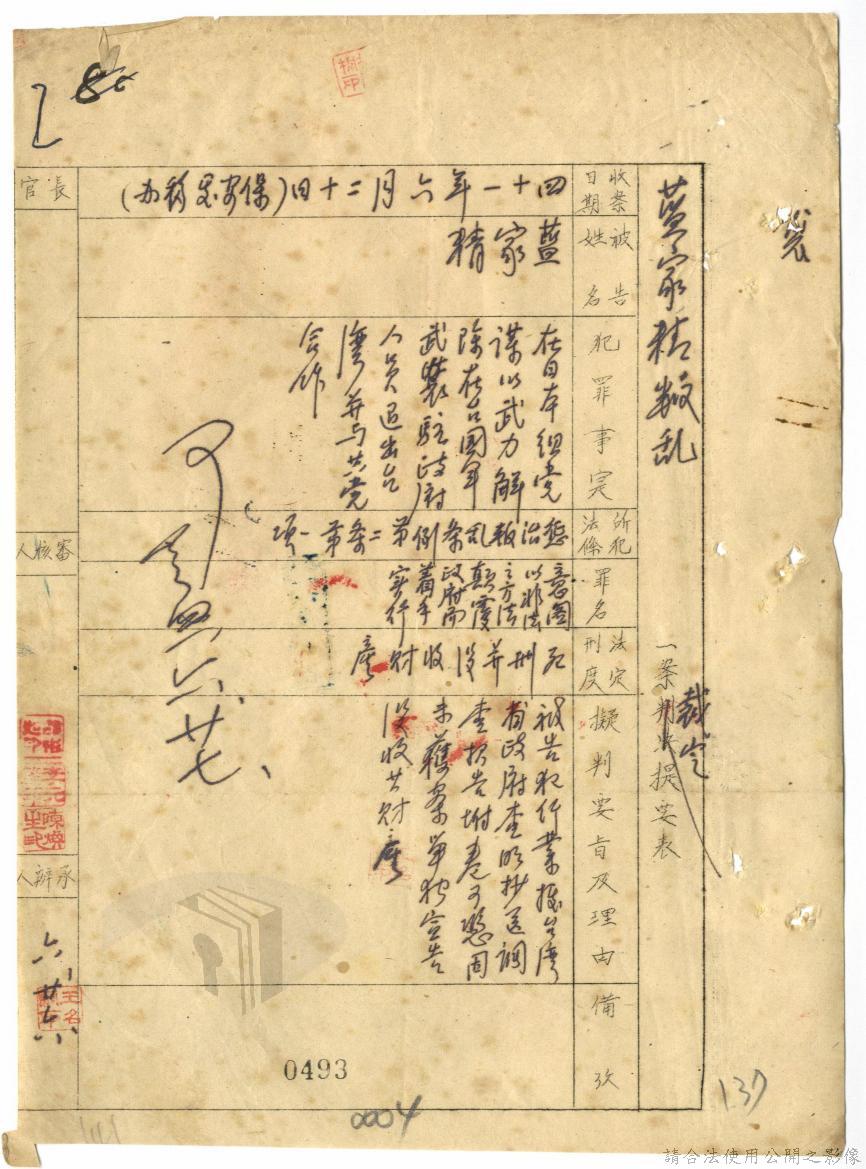 藍家精叛乱
一案裁定提要表
收案日期
四十一年六月二十日(保安司移办)
被告姓名
藍家精
犯罪事实
在日本組党
謀以武力解
除在台國軍
武裝駐政府
人員退出台
灣并与共党
合作
所犯法條
懲治叛乱条例第二条第一項
罪名
意圖
以非法
之方法
顛覆
政府而
着手
实行
法定刑度
死刑并没收财产
擬判要旨及理由
被告犯行業據台灣
省政府查明抄送調
查报告附卷可憑因
未獲案單独宣告
没收其财產
備攷
長官
審核人
承辦人
可
六、廿七、
六、廿六、
0493
0004
137
請合法使用公開之影像